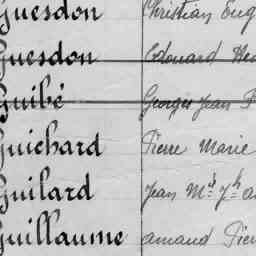 Guesdon Christian Eug
Guesdon Edouard
Guibé Georges Jean
Guichard Pierre Marie
Guilard Jean
Guillaume amand Pier